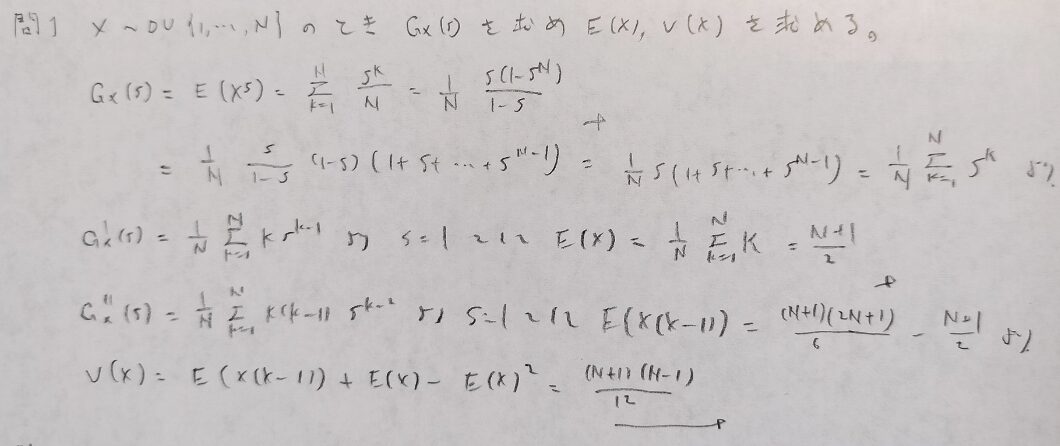 問1 X ~ DU {1,…,N} のとき Gx(s) を求め E(X), V(X) を求める。
Gx(s) = E(X^s) = Σ_{k=1}^{N} s^k/N = 1/N s(1-s^N)/(1-s)
= 1/N s/(1-s) (1-s)(1+s+…+s^{N-1}) = 1/N s(1+s+…+s^{N-1}) = 1/N Σ_{k=1}^{N} s^k より
Gx'(s) = 1/N Σ_{k=1}^{N} k s^{k-1} より s=1 として E(X) = 1/N Σ_{k=1}^{N} K = (N+1)/2
Gx''(s) = 1/N Σ_{k=1}^{N} k(k-1) s^{k-2} より s=1 として E(X(X-1)) = (N+1)(2N+1)/6 - (N+1)/2 より
V(X) = E(X(X-1)) + E(X) - E(X)^2 = (N+1)(N-1)/12